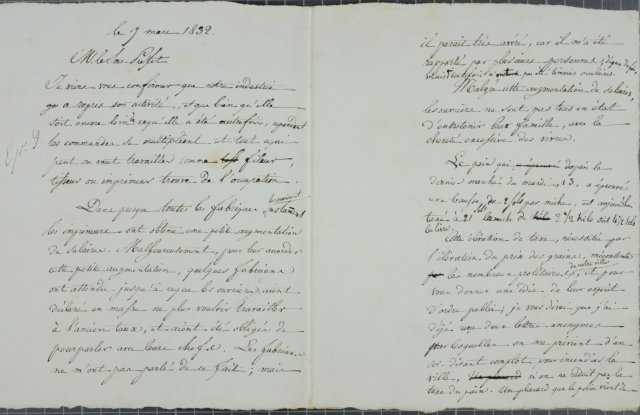 le 7 mars 1832.
M. le Préfet
Je viens vous confirmer que notre industrie
a repris son activité, et que bien qu'elle
soit encore de ce qu'elle a été autrefois, cependant
les commandes se multiplient et tout ce que
peut ou veut travailler comme fileur,
tisseur ou imprimeur trouve de l'occupation.
Dans presque toutes les fabriques, notamment
les imprimeurs ont obtenu une petite augmentation
de salaires. Malheureusement, pour leur accorder
cette petite augmentation, quelques fabricans
ont attendu jusqu'à ce que les ouvriers aient
déclaré en masse ne plus vouloir travailler
à l'ancien taux, et aient été obligés de
pourparler avec leurs chefs. Les fabricans
ne m'ont pas parlé de ce fait; mais
il paraît très avéré, car il m'a été
rapporté par plusieurs personnes dignes de foi,
témoins oculaires.
Malgré cette augmentation de salaires,
les ouvriers ne sont pas tous en état
d'entretenir leur famille, avec la
cherté excessive des vivres.
Le pain qui, depuis le
dernier marché du mardi, 13, a éprouvé
une hausse de 2 sols par miche, est aujourd'hui
taxé à 21 sols la miche de 2 1/2 kilo
le livre.
Cette élévation de taxe, nécessitée par
l'élévation du prix des grains, mécontente
les nombreux prolétaires de notre ville, et pour
vous donner une idée de leur esprit
d'ordre public, je vous dirai que j'ai
déjà reçu deux lettres anonymes
par lesquelles on me prévient d'un
soi disant complot pour incendier la
ville, si on ne réduit pas la
taxe du pain. Un placard que la police vient de